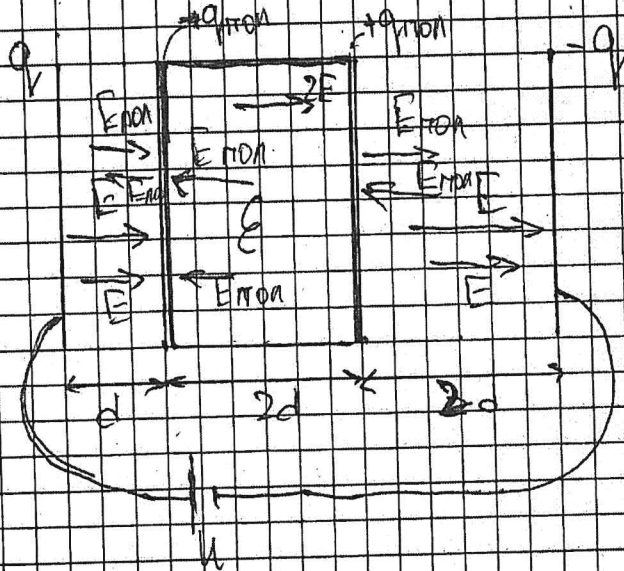 +qпол +qпол
q -q
2E
Eпол Eпол Eпол
Eпол Eпол
E E
ε
E Eпол E
d 2d 2d
U